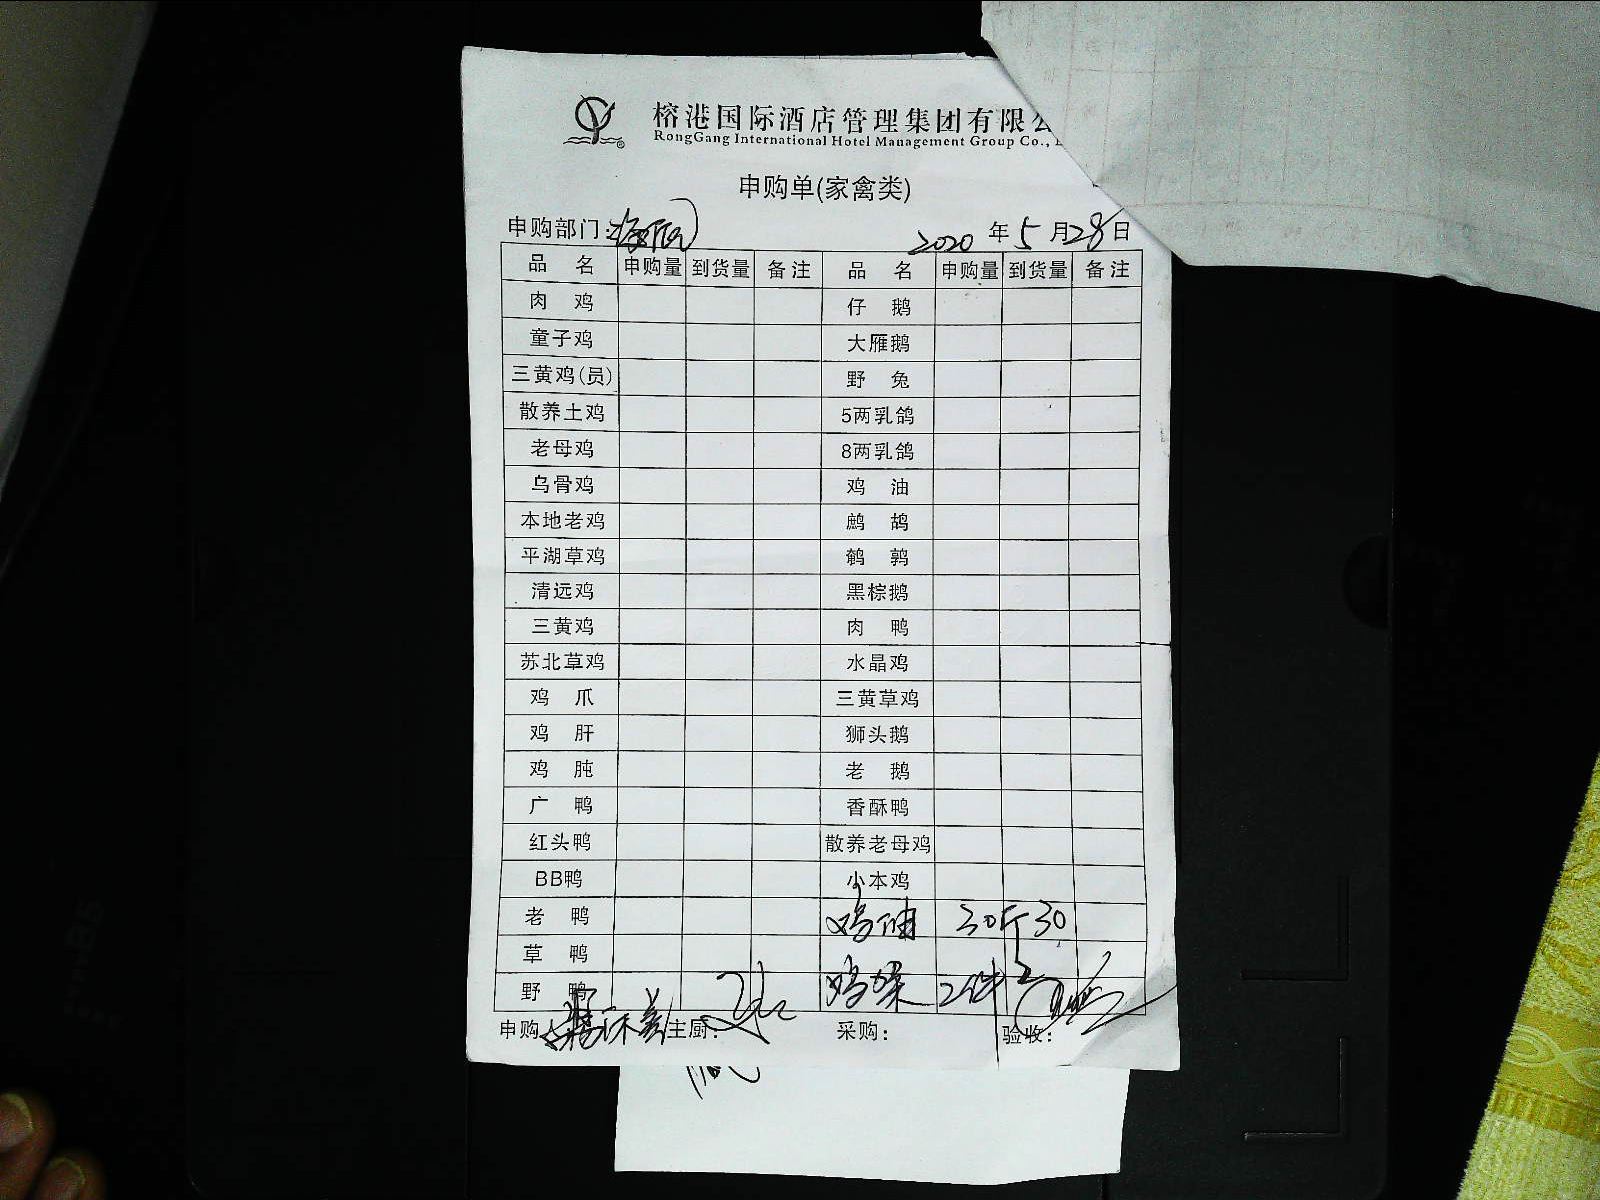 榕港国际酒店管理集团有限公
RongGang International Hotel Management Group Co.,
申购单(家禽类)
申购部门: 2020 年 5 月 28 日
品 名 申购量 到货量 备注 品 名 申购量 到货量 备注
肉 鸡 仔 鹅
童子鸡 大雁鹅
三黄鸡(员) 野 兔
散养土鸡 5两乳鸽
老母鸡 8两乳鸽
乌骨鸡 鸡 油
本地老鸡 鹧 鸪
平湖草鸡 鹌 鹑
清远鸡 黑棕鹅
三黄鸡 肉 鸭
苏北草鸡 水晶鸡
鸡 爪 三黄草鸡
鸡 肝 狮头鹅
鸡 肫 老 鹅
广 鸭 香酥鸭
红头鸭 散养老母鸡
BB鸭 小本鸡
老 鸭 鸡油 30斤 30
草 鸭
野 鸭 鸡 2件 2
申购 主厨: 采购: 验收: